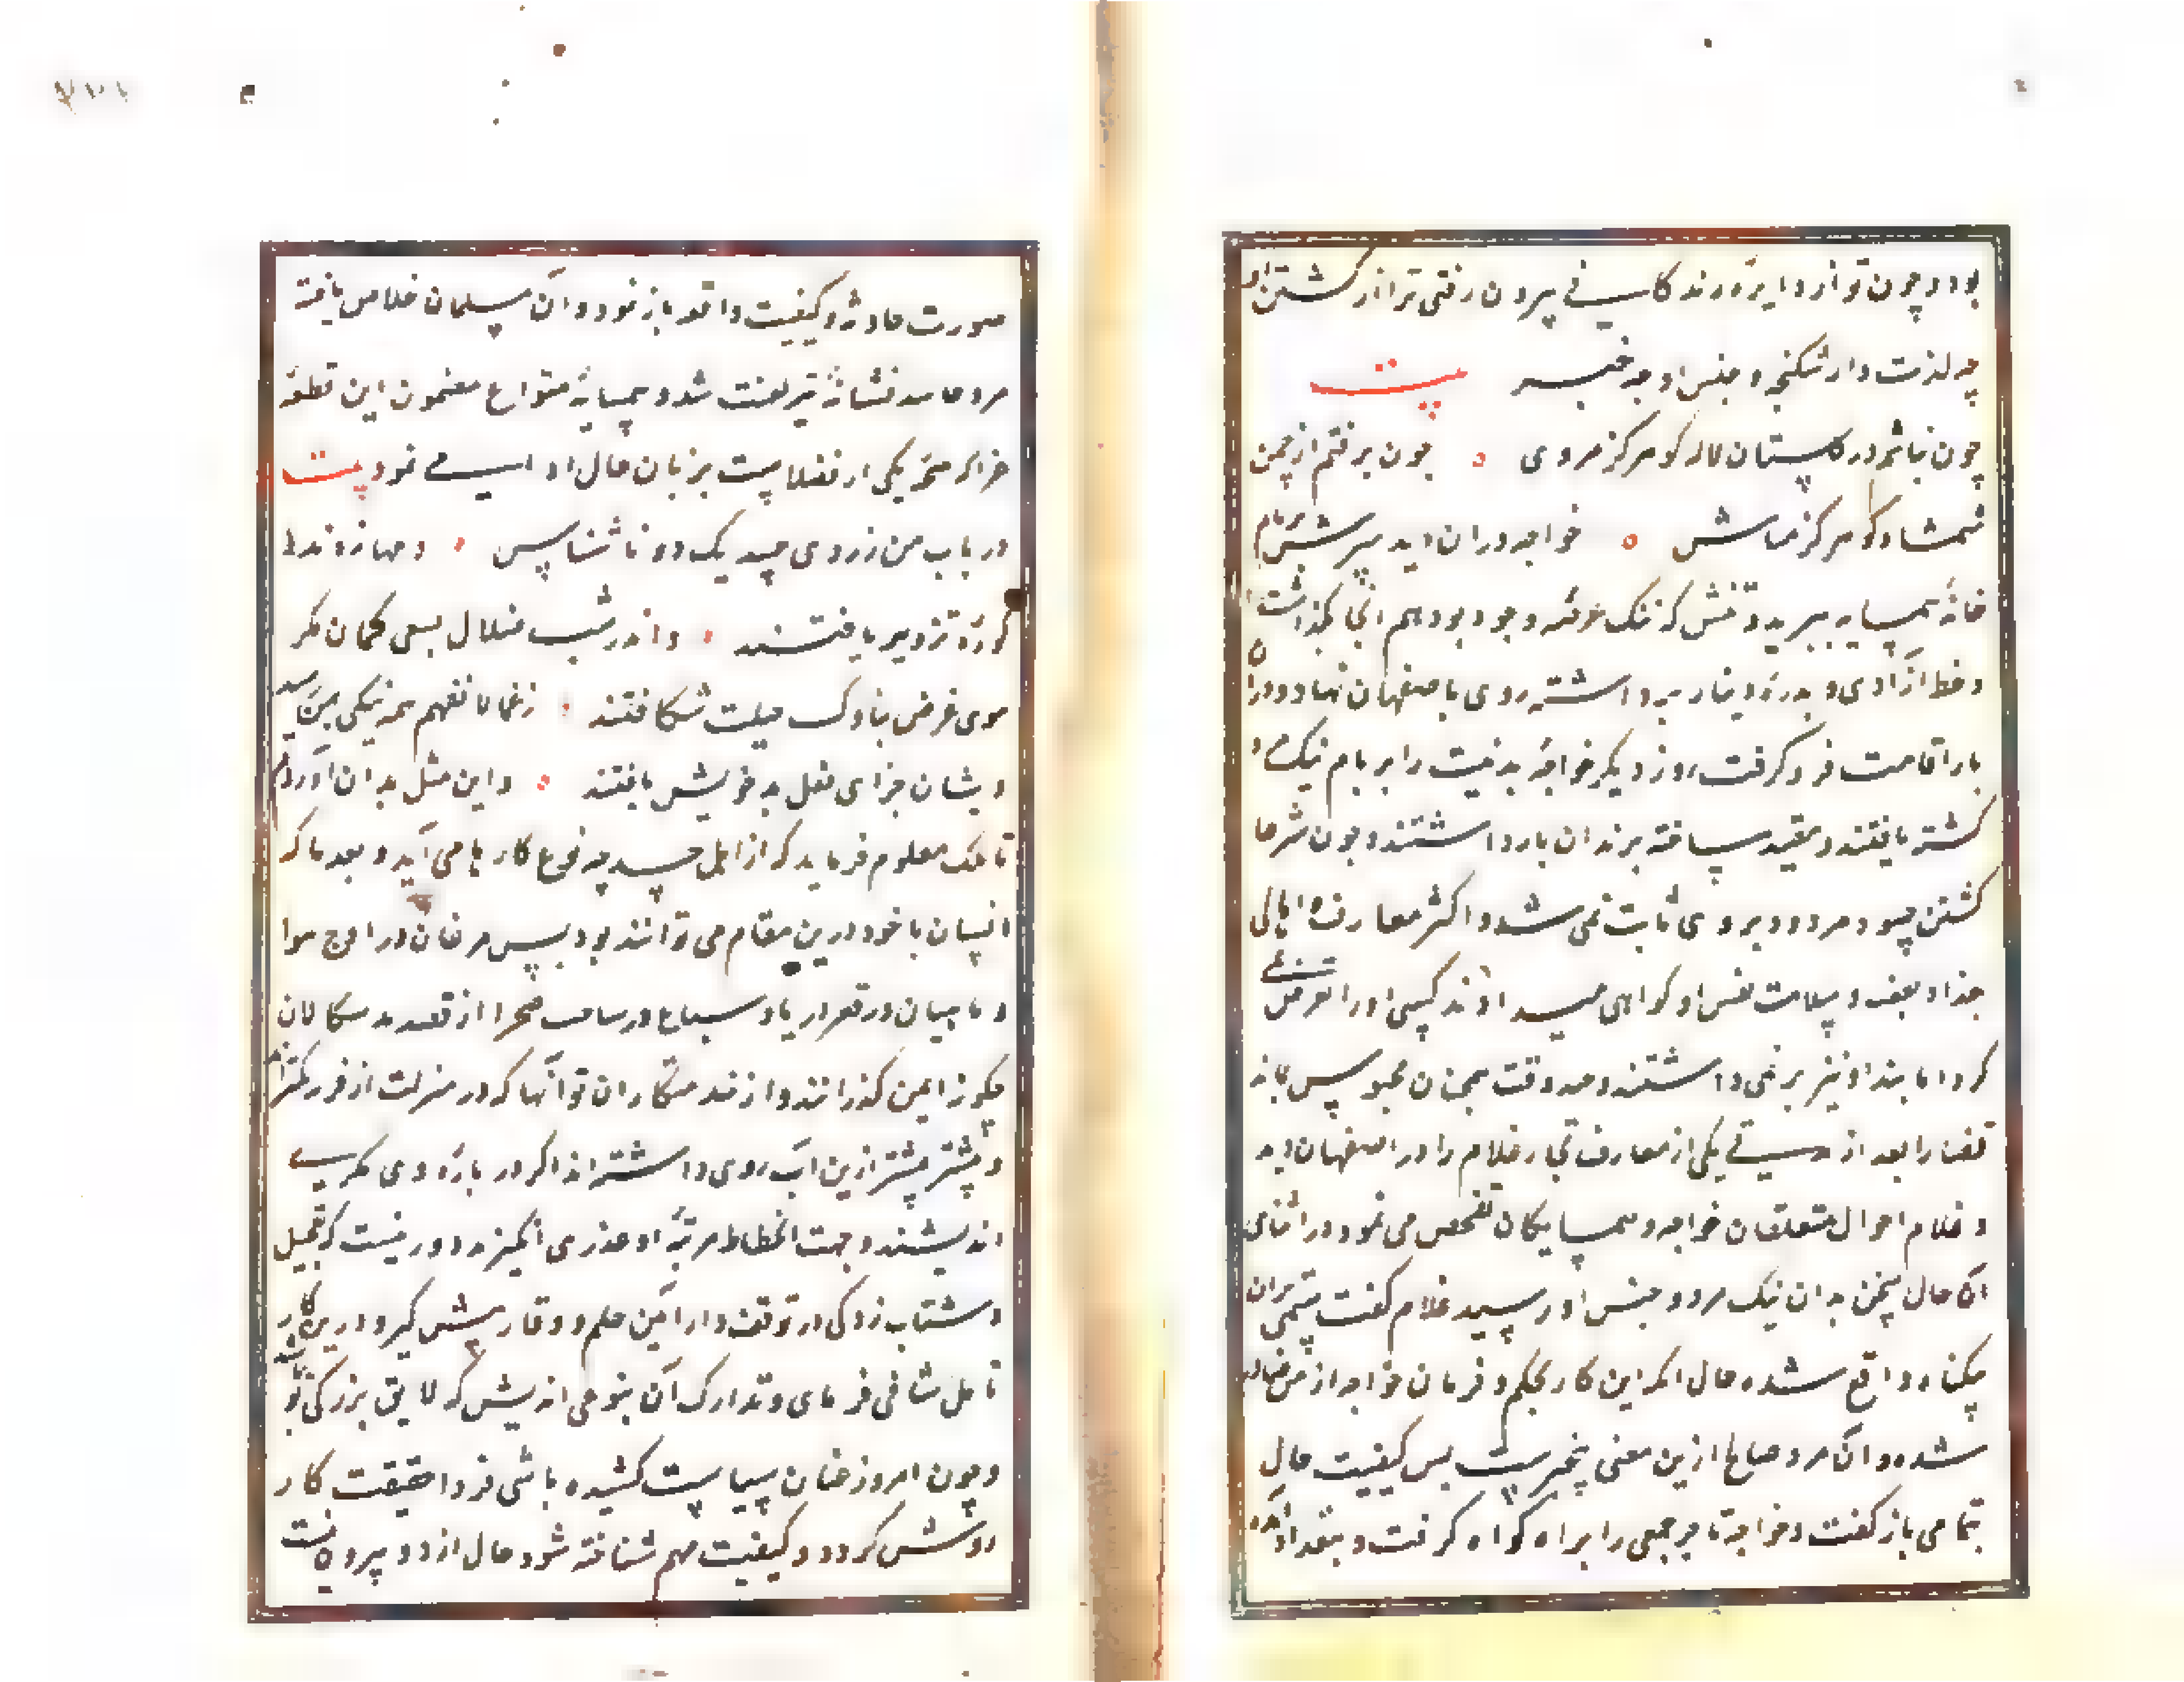 بود و چون تو از دایرهٔ زندگانی بیرون رفتی ترا از کشتن او
چه لذت و از شکنجه و حبس او چه خبر بیت
چون نباشم در گلستان لاله گو هرگز مروی چون برفتم از چمن
شمشاد گو هرگز مباش خواجه در آن دید سرش بر بام
خانهٔ همسایه ببرید و تنش که ننگ عرصه وجود بود هم آنجا بگذاشت
و خط آزادی و بدرهٔ دینار برداشته روی باصفهان نهاد و در آن
بار اقامت فرو گرفت روز دیگر خواجهٔ بدنیت را بر بام نیک مرد
کشته یافتند و مقید ساخته بزندان بازداشتند و چون شرعا
کشتن حسود مردود بر وی ثابت نمی شد و اکثر معارف و اهالی
بغداد بعفت و سلامت نفس او گواهی میدادند کسی او را تعرضی
نکرد اما بند او نیز بر نمی داشتند و مدت همچنان محبوس بماند
قضا را بعد از مدتی یکی از معارف تجار غلام را در اصفهان دید
و غلام احوال متعلقان خواجه و همسایگان تفحص می نمود در اثنای
آن حال سخن بدان نیک مرد و حبس او رسید غلام گفت ستمی بران
بیگناه واقع شده حال آنکه این کار بحکم و فرمان خواجه از من صادر
شده و آن مرد صالح ازین معنی بیخبر است پس کیفیت حال
بتمامی باز گفت و خواجه تاجر جمعی را بر آن گواه گرفت و ببغداد آمده
صورت حادثه و کیفیت واقعه باز نمود و آن مسلمان خلاص یافته
مرد حاسد نشانهٔ تیر لعنت شد و همسایهٔ متواع مضمون این قطعه
را که یکی از فضلاست بر زبان حال ادا می نمود بیت
در باب من ز روی حسد یک دو ناشناس دمها زدند
کورهٔ تزویر یافتند و اندر شب ضلال بسعی کمان مکر
موی غرض بناوک حیلت شکافتند ز انها لا تفهم همه نیکی بمن رسید
ویشان جزای فعل بد خویش یافتند و این مثل بدان آوردم
تا ملک معلوم فرماید که از اهل حسد چه نوع کارها می آید و بعد ما که
انسان با خود درین مقام می توانند بود پس مرغان در اوج هوا
و ماهیان در قعر دریا و سباع در ساحت صحرا از قصد بدسگالان
چگونه ایمن گذرانند و از خدمتکاران تو آنها که در منزلت از فرو کمترند
و پیشتر بیشتر ازین آب روی داشته اند اگر در بارهٔ وی مکری
اندیشند و جهت انحطاط مرتبهٔ او عذری انگیزند دور نیست که تعجیل
و شتاب زدگی در توقف دار آئین حلم و وقار پیش گیر و درین کار
تامل شافی فرمای و تدارک آن بنوعی اندیش که لایق بزرگی تو باشد
و چون امروز عنان سیاست کشیده باشی فردا حقیقت کار
روشن گردد و کیفیت مهم شناخته شود حال از دو بیرون نیست